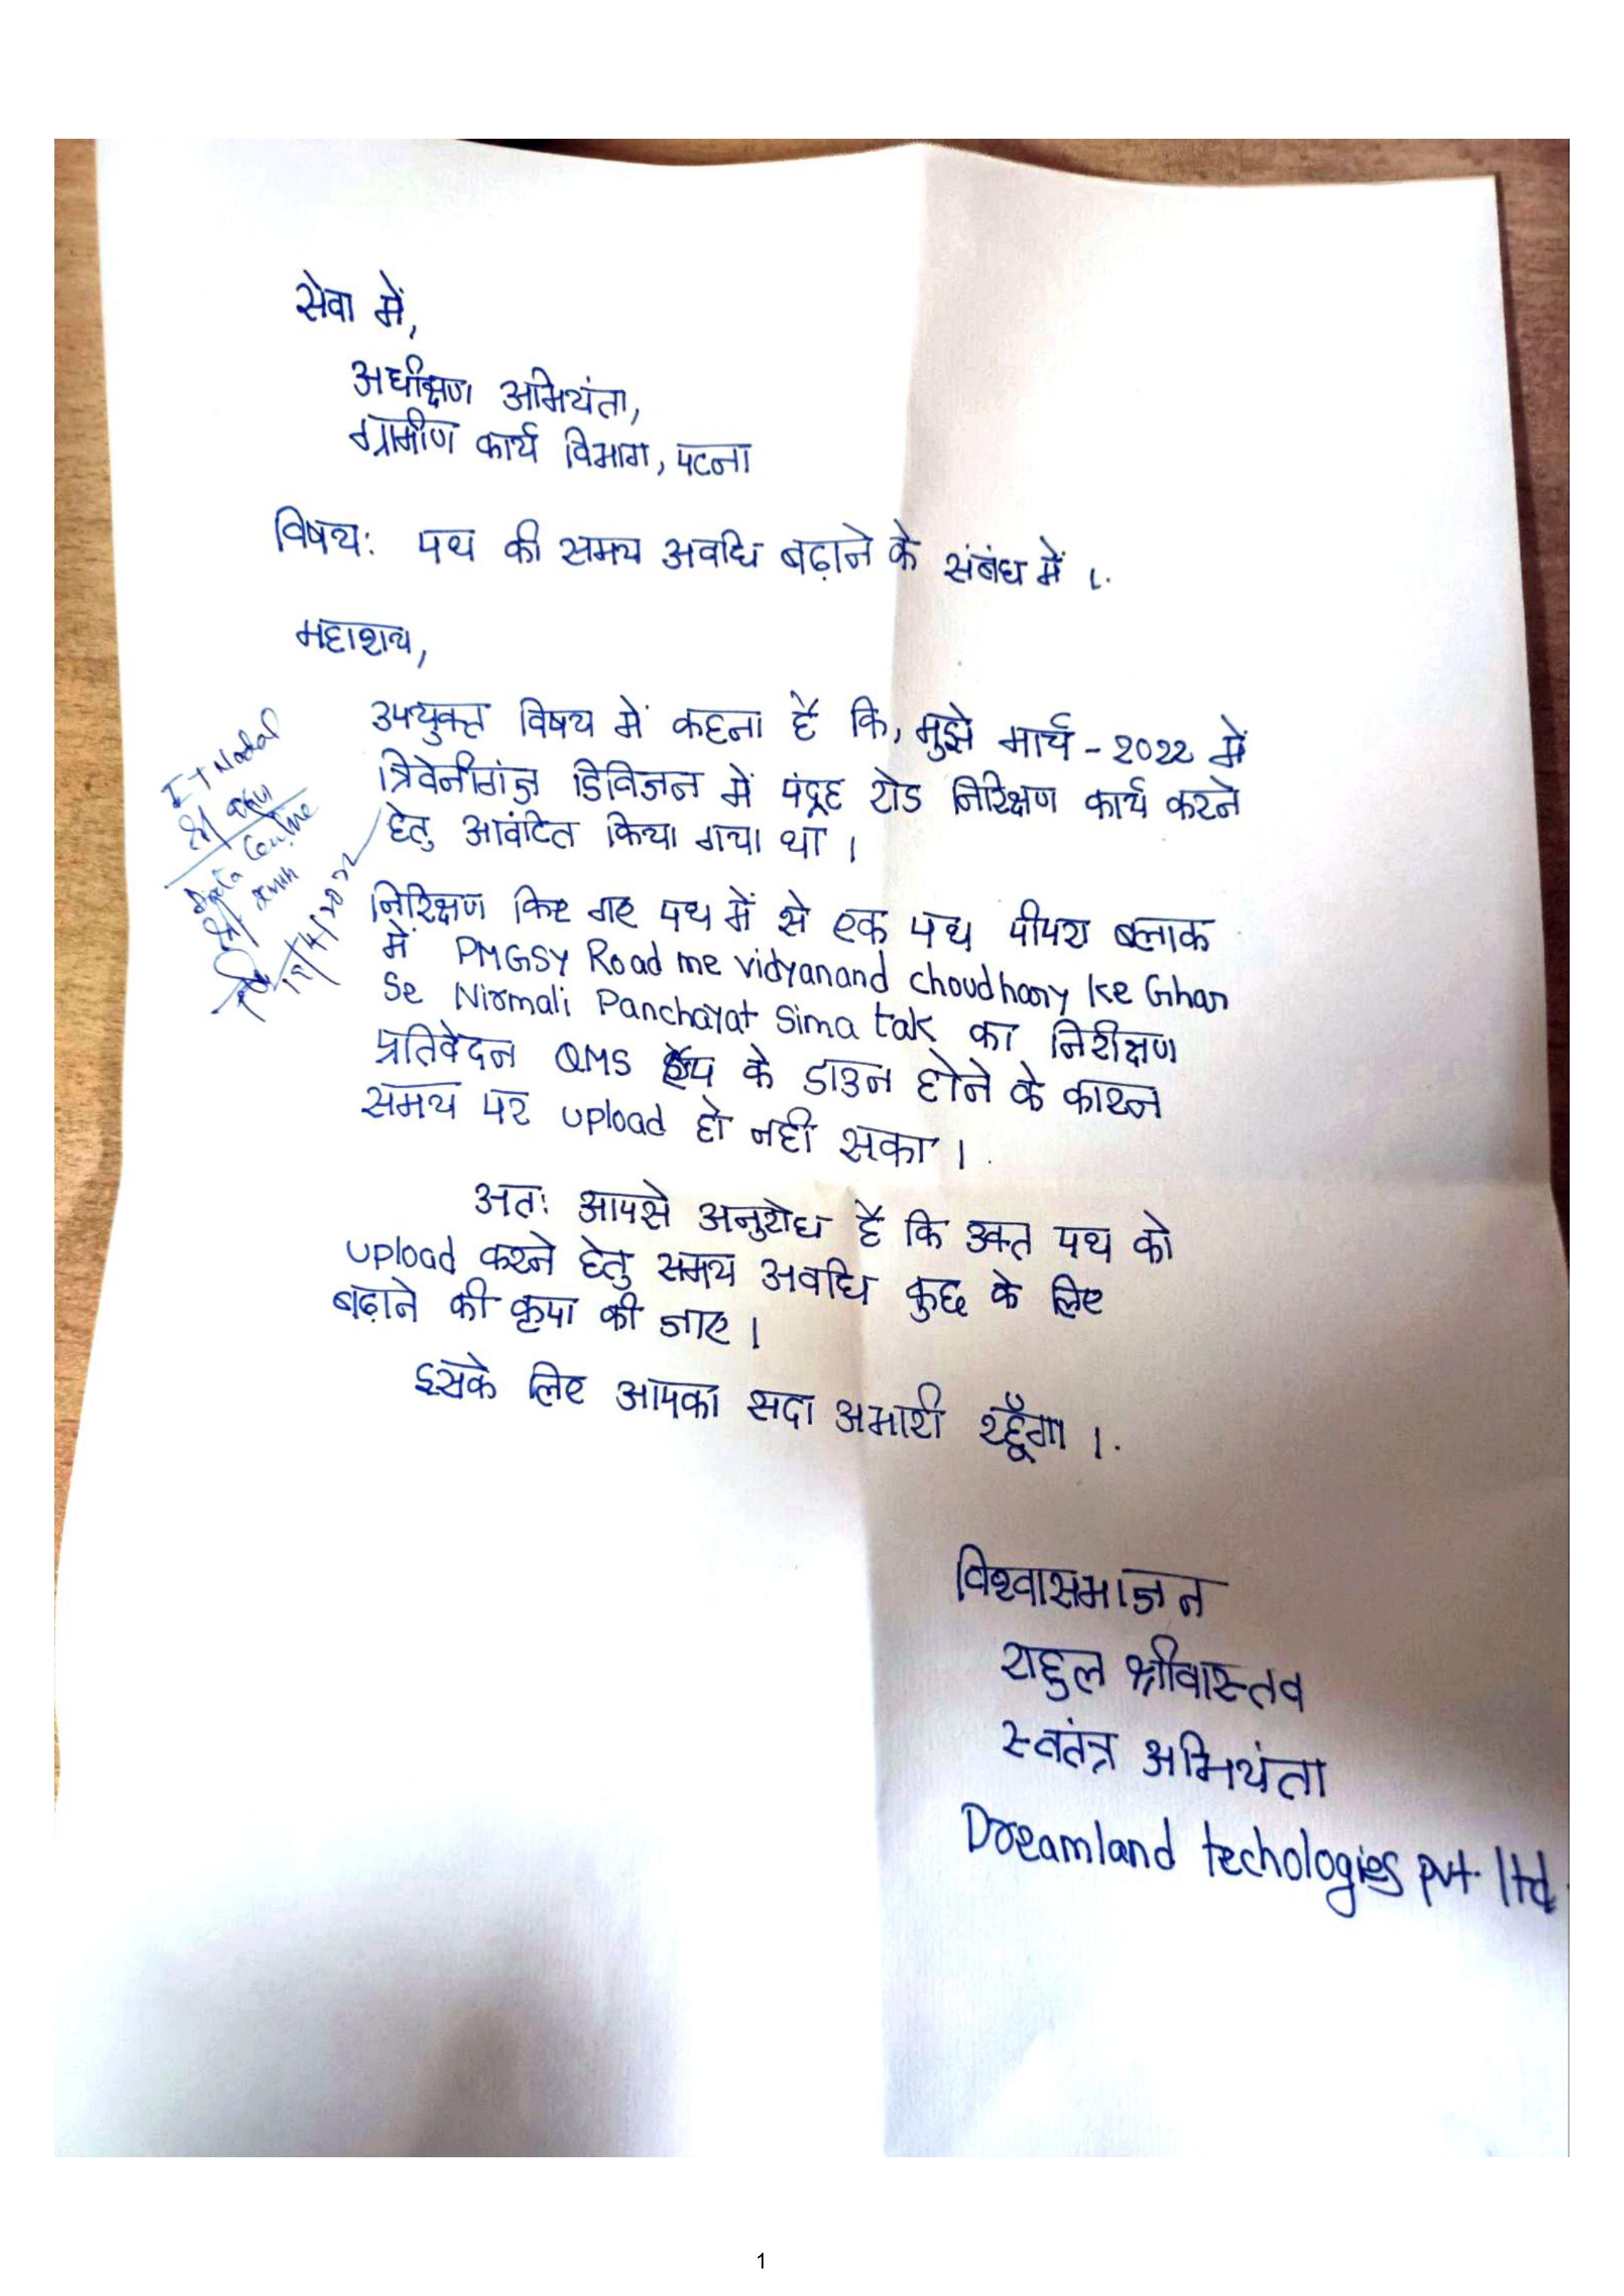 सेवा में,
अधीक्षण अभियंता,
ग्रामीण कार्य विभाग, पटना
विषय: पथ की समय अवधि बढ़ाने के संबंध में ।
महाशय,
उपयुक्त विषय में कहना है कि, मुझे मार्च - 2022 में
त्रिवेनीगंज डिविजन में पंद्रह रोड निरिक्षण कार्य करने
हेतु आवंटित किया गया था ।
I T Nodal
Data Centre
निरिक्षण किए गए पथ में से एक पथ पीपरा ब्लाक
में PMGSY Road me vidyanand choudhary ke Ghar
Se Nirmali Panchayat Sima tak का निरीक्षण
प्रतिवेदन QMS के डाउन होने के कारन
समय पर upload हो नही सका ।
अतः आपसे अनुरोध है कि उक्त पथ को
upload करने हेतु समय अवधि कुछ के लिए
बढ़ाने की कृपा की जाए ।
इसके लिए आपका सदा अभारी रहूँगा ।
विश्वासभाजन
राहुल श्रीवास्तव
स्वतंत्र अभियंता
Dreamland techologies pvt. ltd.
1